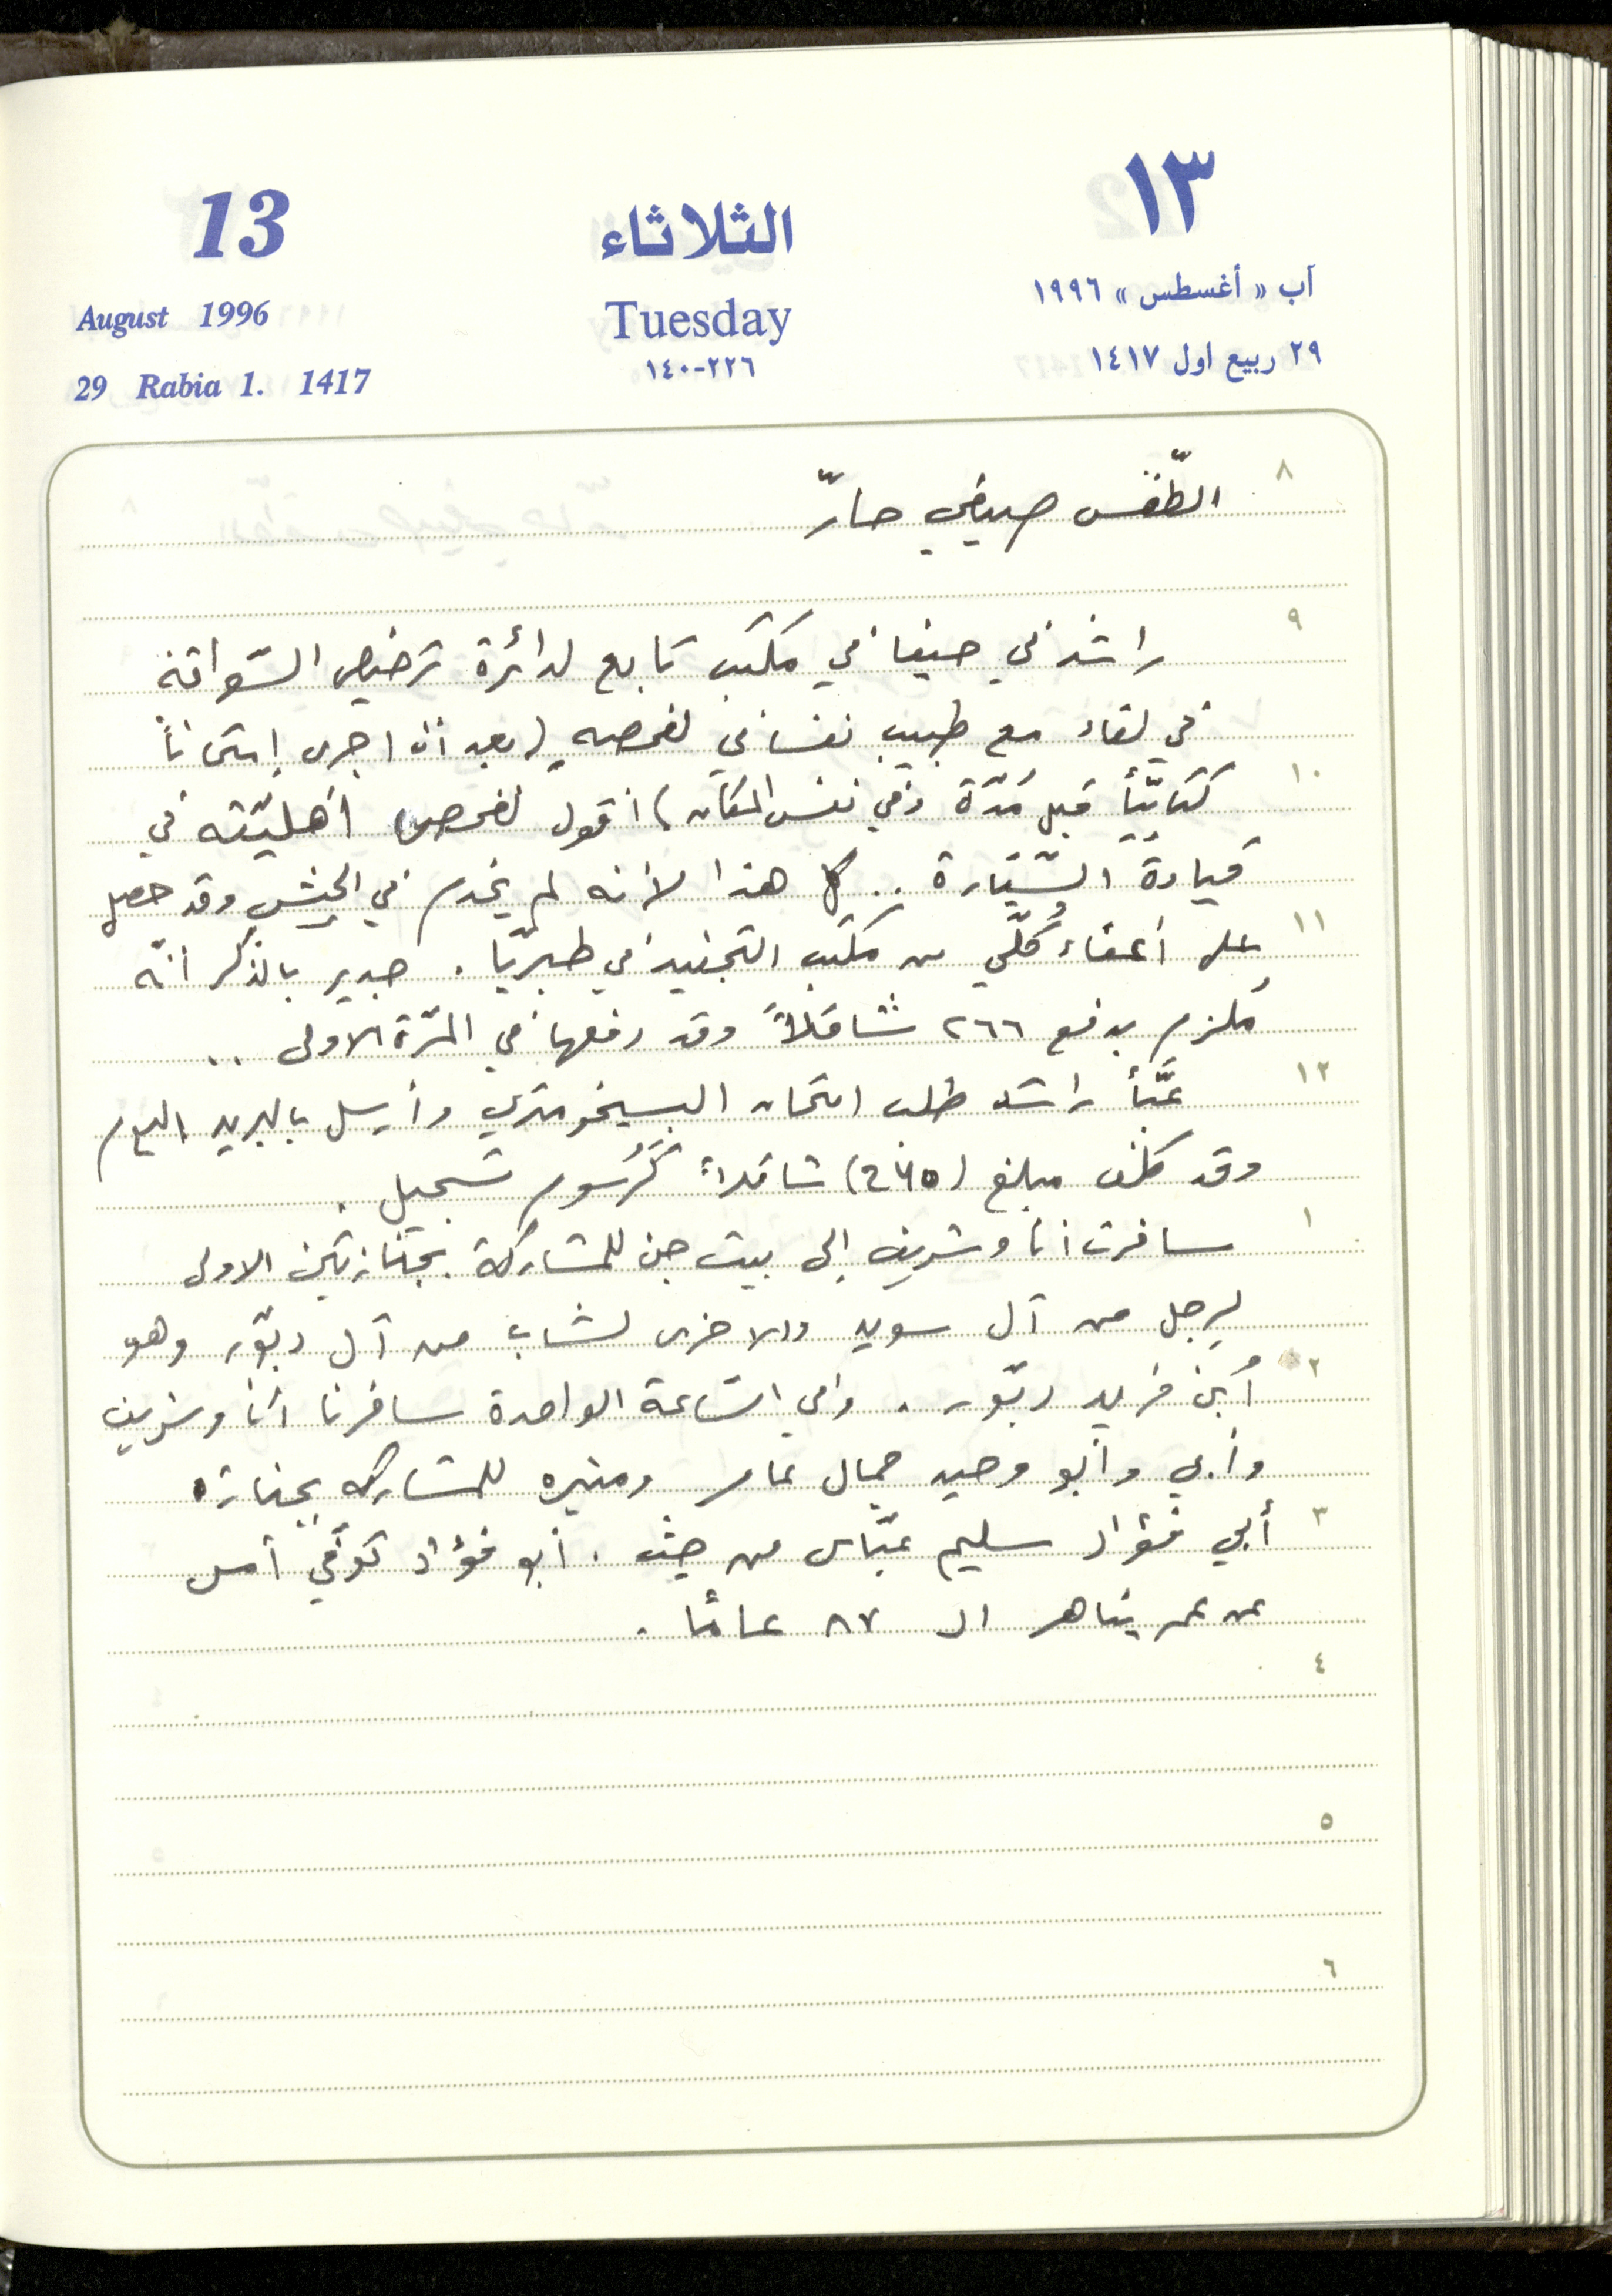 13
الثلاثاء
١٣
August 1996
Tuesday
آب « أغسطس » ١٩٩٦
29 Rabia 1. 1417
٢٢٦-١٤٠
٢٩ ربيع اول ١٤١٧
٨
الطّقس صيفي حارّ
٩
راشد في حيفا في مكتب تابع لدائرة ترخيص السّواقة
في لقاء مع طبيب نفساني لفحصه (بعد أن اجرى إمتحاناً
١٠
كتابيّاً قبل مُدّة وفي نفس المكان) أقول لفحص أهليّته في
قيادة السّيّارة .. كل هذا لأنه لم يخدم في الجيش وقد حصل
١١
على أعفاء كُلّي من مكتب التجنيد في طبريّا . جدير بالذكر انّه
مُلزم بدفع ٢٦٦ شاقلاً وقد دفعها في المرّة الاولى ..
١٢
عبّأ راشد طلب امتحان البسيخومتري وأرسل بالبريد اليوم
وقد كلّف مبلغ (265) شاقلاً كرُسوم تسجيل .
١
سافرت أنا وشريف إلى بيت جن للمشاركة بجنازتين الاولى
لرجل من آل سويد والاخرى لشاب من آل دبّور وهو
٢
أبن فريد دبّور . وفي السّاعة الواحدة سافرنا أنا وشريف
وأبي وأبو وحيد جمال عامر ومنيره للمشاركه بجنازه
٣
أبي فؤاد سليم عبّاس من جث . أبو فؤاد توُفّي أمس
عن عمر يناهز ال ٨٧ عامًا .
٤
٥
٦